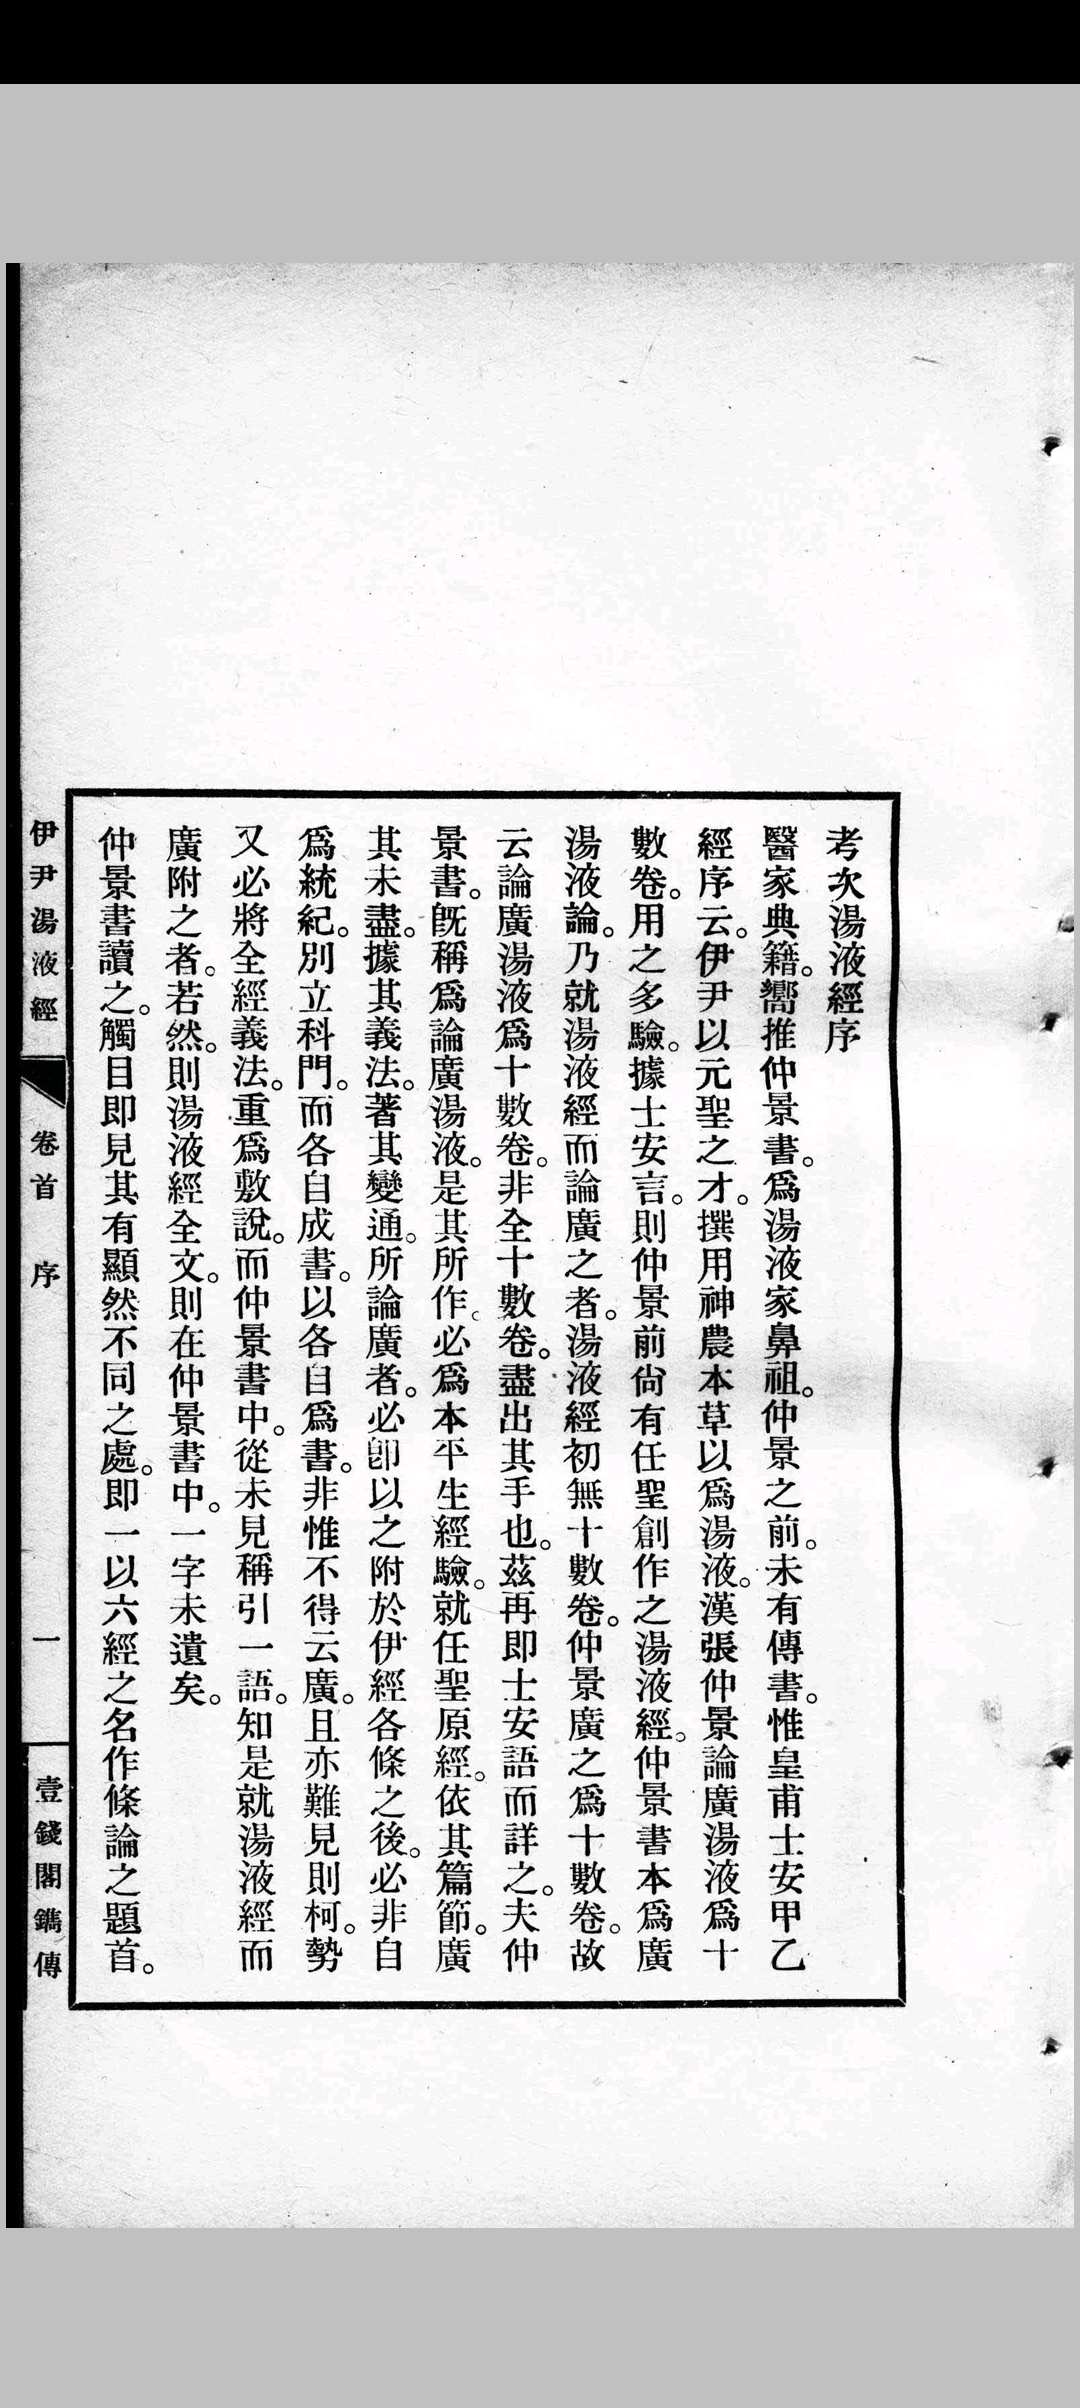 考次湯液經序
醫家典籍。嚮推仲景書。爲湯液家鼻祖。仲景之前。未有傳書。惟皇甫士安甲乙
經序云。伊尹以元聖之才。撰用神農本草以爲湯液。漢張仲景論廣湯液爲十
數卷。用之多驗。據士安言。則仲景前尙有任聖創作之湯液經。仲景書本爲廣
湯液論。乃就湯液經而論廣之者。湯液經初無十數卷。仲景廣之爲十數卷。故
云論廣湯液爲十數卷。非全十數卷。盡出其手也。茲再即士安語而詳之。夫仲
景書。旣稱爲論廣湯液。是其所作。必爲本平生經驗。就任聖原經。依其篇節。廣
其未盡。據其義法。著其變通。所論廣者。必卽以之附於伊經各條之後。必非自
爲統紀。別立科門。而各自成書。以各自爲書。非惟不得云廣。且亦難見則柯。勢
又必將全經義法。重爲敷說。而仲景書中。從未見稱引一語。知是就湯液經而
廣附之者。若然。則湯液經全文。則在仲景書中。一字未遺矣。
仲景書讀之。觸目即見其有顯然不同之處。即一以六經之名作條論之題首。
伊尹湯液經 卷首 序 一 壹錢閣鐫傳